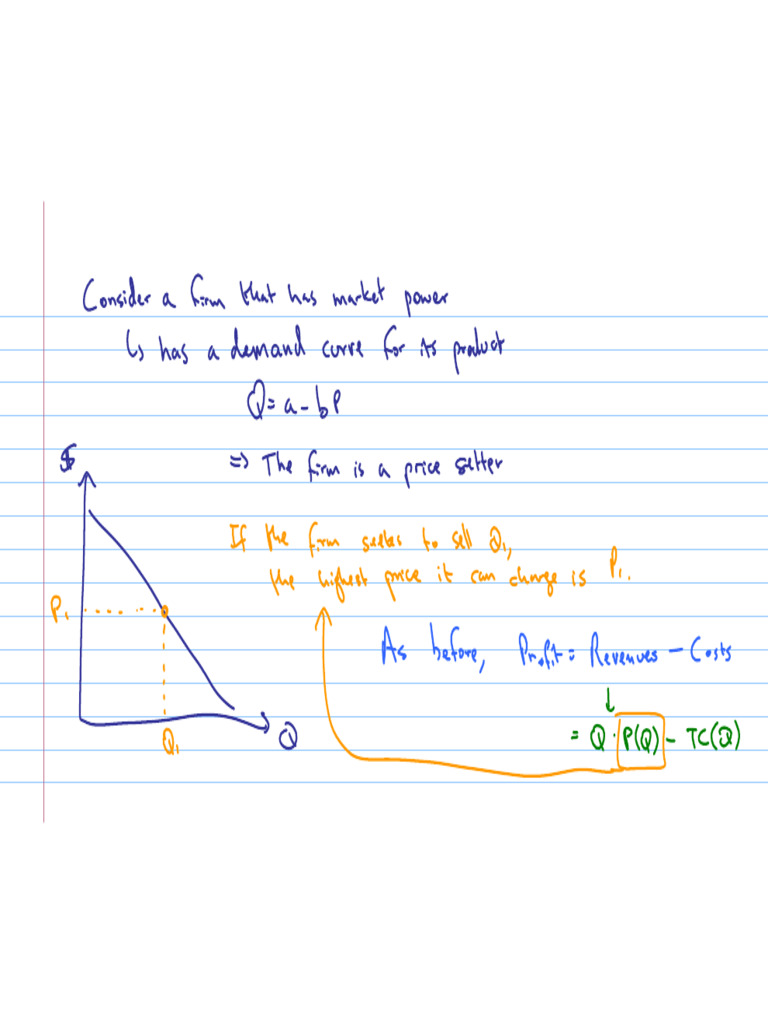 Consider a firm that has market power
↳ has a demand curve for its product
Q = a - bP
=> The firm is a price setter
$
If the firm seeks to sell Q₁,
the highest price it can charge is P₁.
P₁
As before, Profit = Revenues - Costs
↓
= Q · P(Q) - TC(Q)
Q₁
Q